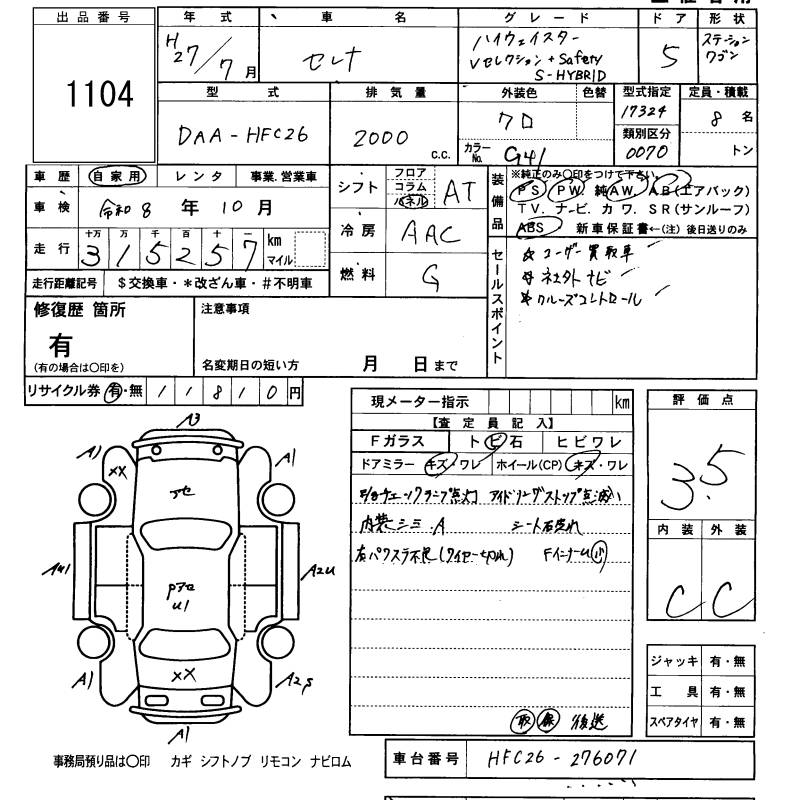 出品番号
1104
年式
H27/7月
車名
セレナ
グレード
ハイウェイスター
Vセレクション+Safety
S-HYBRID
ドア
5
形状
ステーション
ワゴン
型式
DAA-HFC26
排気量
2000 c.c.
外装色
クロ
色替
カラーNo.
G41
型式指定
17324
類別区分
0070
定員・積載
8名
トン
車歴
自家用
レンタ
事業.営業車
車検
令和8年10月
走行
十万 万 千 百 十
3 1 5 2 5 7
km
マイル
走行距離記号
$交換車・*改ざん車・#不明車
シフト
フロア
コラム
パネル
AT
冷房
AAC
燃料
G
装備品
※純正のみ○印をつけて下さい。
PS PW. 純AW. AB(エアバック)
TV. ナービ. カワ. SR(サンルーフ)
ABS 新車保証書←(注)後日送りのみ
セールスポイント
☆ユーザー買取車
ナビ
クルーズコントロール
修復歴 箇所
有
(有の場合は○印を)
注意事項
名変期日の短い方 月 日まで
リサイクル券 有・無 11810円
現メーター指示 km
【査定員記入】
Fガラス
トビ石
ヒビワレ
ドアミラー
キズ・ワレ
ホイール(CP)
キズ・ワレ
チェックランプ点灯 アイドリングストップ点滅
内装シミ.A
右パワスラ不良(ワイヤー切れ)
FインナーU小
後送
評価点
3.5
内装
外装
C
C
ジャッキ 有・無
工具 有・無
スペアタイヤ 有・無
A3
A1
A1
XX
AU1
A2U
U1
XX
A1
A2S
A1
事務局預り品は○印 カギ シフトノブ リモコン ナビロム
車台番号
HFC26-276071